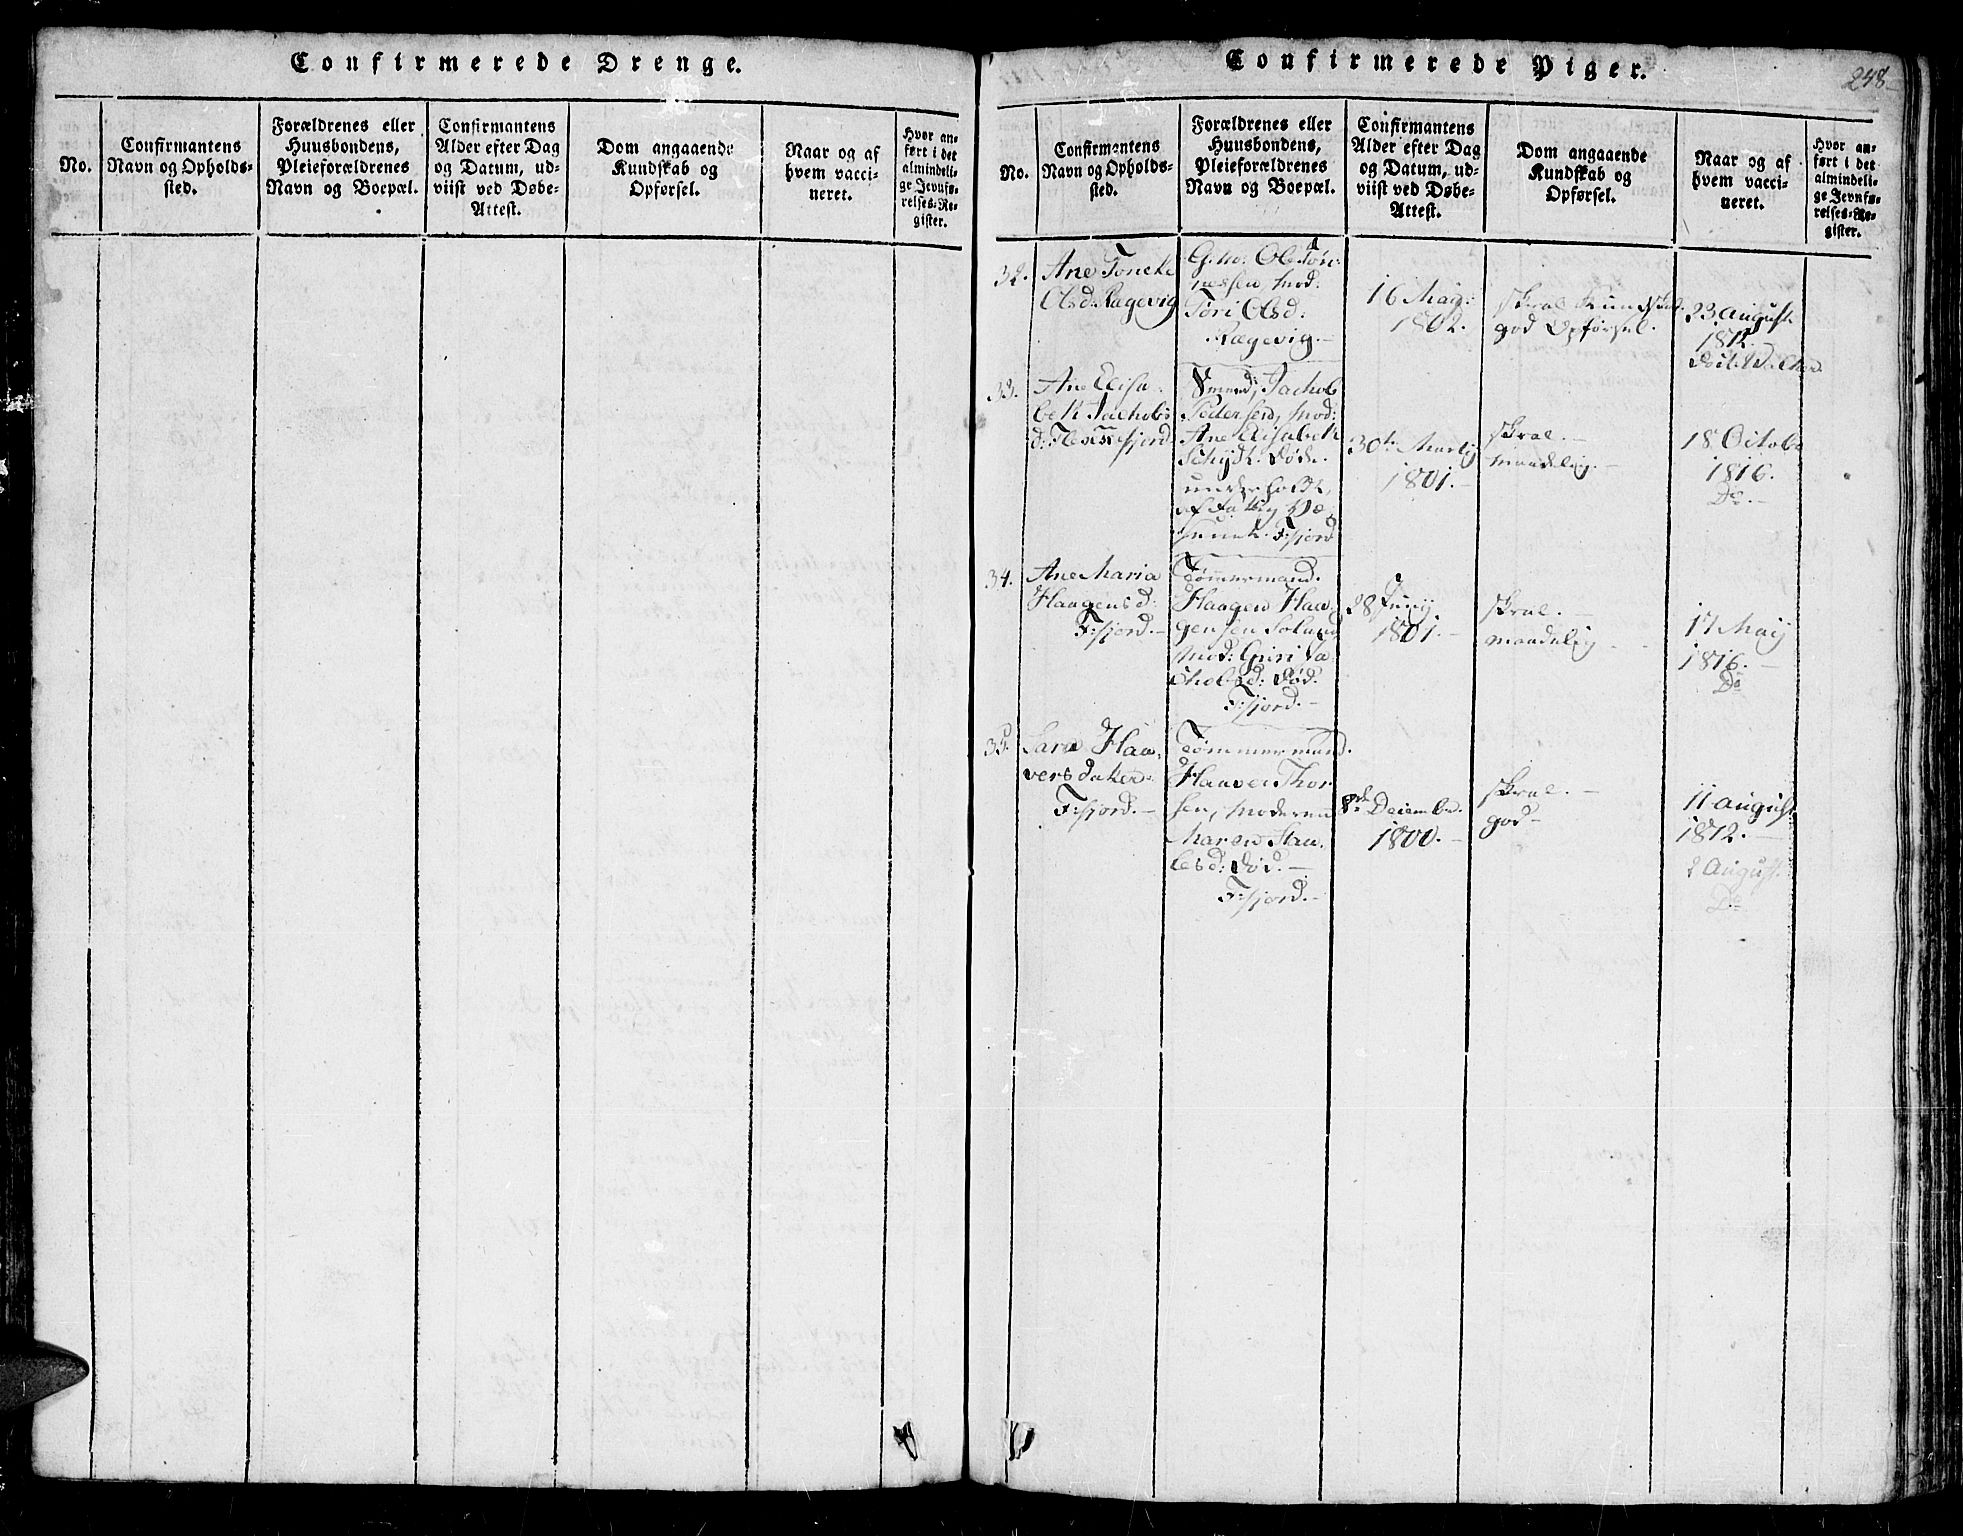 Confirmerede Drenge.
No.
Confirmantens
Navn og Opholds-
sted.
Forældrenes eller
Huusbondens,
Pleieforældrenes
Navn og Boepæl.
Confirmantens
Alder efter Dag
og Datum, ud-
viist ved Døbe-
Attest.
Dom angaaende
Kundskab og
Opførsel.
Naar og af
hvem vacci-
neret.
Hvor an-
ført i det
almindeli-
ge Jevnfø-
relses-Re-
gister.
Confirmerede Piger.
248
No.
Confirmantens
Navn og Opholds-
sted.
Forældrenes eller
Huusbondens,
Pleieforældrenes
Navn og Boepæl.
Confirmantens
Alder efter Dag
og Datum, ud-
viist ved Døbe-
Attest.
Dom angaaende
Kundskab og
Opførsel.
Naar og af
hvem vacci-
neret.
Hvor an-
ført i det
almindeli-
ge Jevnfø-
relses-Re-
gister.
32.
Ane Toneke
Olsd: Ragevig
Ole Tön-
nessen, Mod:
Tori Olsd:
Ragevig.
16 Maij
1802.
skral Kundskab
god Opførsel.
23 august
1812.
33.
Ane Elisa-
beth Jachobs
d: Flekkefjord
Jachob
Pedersen, Mod:
Ane Elisabeth
død.
underholdt
af Fattig Væ-
senet. F:fjord
30te Martij
1801.
skral.
maadelig.
18 Octobr
1816.
Do.
34.
Ane Maria
Haagensd:
F:fjord.
Tømmermand.
Haagen Haa-
gensen
Mod: Guri Ja-
chobsd: død.
F:fjord.
28 Junij
1801.
skral.
maadelig
17 Maij
1816.
Do
35.
Sara Haa-
versdater
F:fjord.
Tømmermand.
Haaver Thor-
sen, Moderen
Maren Haa-
lesd: død.
F:fjord.
8de Decembr.
1800.
skral.
god
11 august
1812.
2 August.
Do